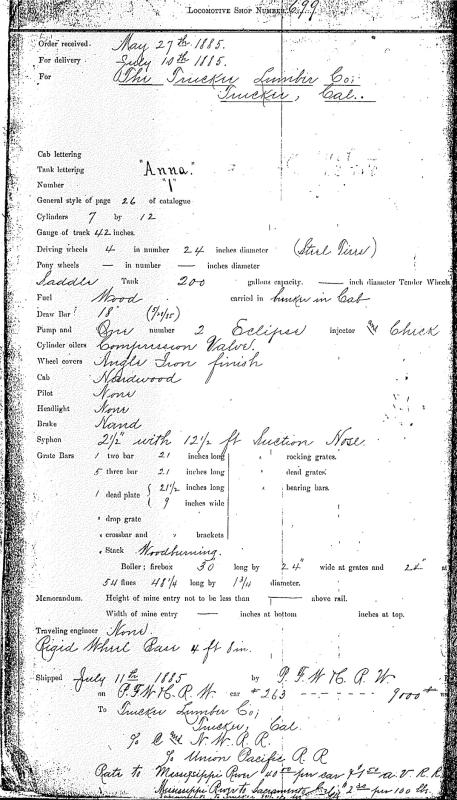 Locomotive Shop Number 699
Order received May 27th 1885.
For delivery July 10th 1885.
For The Truckee Lumber Co;
Truckee, Cal.
Cab lettering
Tank lettering "Anna."
Number "1"
General style of page 26 of catalogue
Cylinders 7 by 12
Gauge of track 42 inches.
Driving wheels 4 in number 24 inches diameter (Steel Tires)
Pony wheels — in number — inches diameter
Saddle Tank 200 gallons capacity. — inch diameter Tender Wheels
Fuel Wood carried in bunker in Cab
Draw Bar 18"
Pump and One number 2 Eclipse injector and Check
Cylinder oilers Compression Valve.
Wheel covers Angle Iron finish
Cab Hardwood
Pilot None
Headlight None
Brake Hand
Syphon 2½" with 12½ ft Suction Hose
Grate Bars 1 two bar 21 inches long rocking grates.
5 three bar 21 inches long dead grates.
1 dead plate { 21½ inches long bearing bars.
9 inches wide
drop grate
crossbar and brackets
Stack Woodburning.
Boiler; firebox 30 long by 24" wide at grates and 24" at
54 flues 48¼ long by diameter.
Memorandum. Height of mine entry not to be less than — above rail.
Width of mine entry — inches at bottom inches at top.
Traveling engineer None.
Rigid Wheel Base 4 ft 8 in.
Shipped July 11th 1885 by P. F. W & C. R. W
on P. F. W & C. R. W. car #263 - - - - - - 9000#
To Truckee Lumber Co;
Truckee, Cal.
To C and N. W. R. R.
To Union Pacific R. R
Rate to Mississippi River $40 00 per car
Mississippi River to Sacramento per 100 lbs.